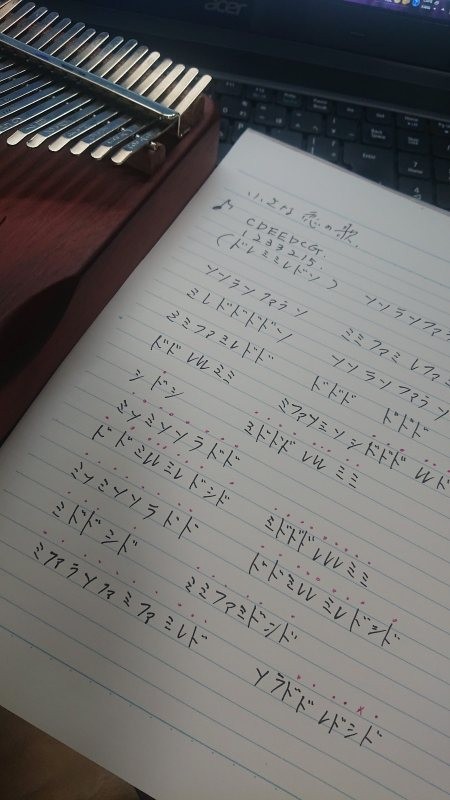 acer
小さな恋の歌
♪ CDEEDCG.
1233215.
(ドレミミレドソ)
ソソラソファラソ ソソラソファ
ミレドドドドソ ミミファミレファミ
ミミファミレドド ソソラソファラソ
ドドレレミミ ドドド ドドド
シドシ ミファソミソシドドド レド
ミソミソソラドド ミドドドレレミミ
ドドミレミレドシド
ミソミソソラドド ミドドドレレミミ
ミドドシド ドドミレミレドシド
ミファラソファミファミレド ミミファミドシド
ソラドドレドシド